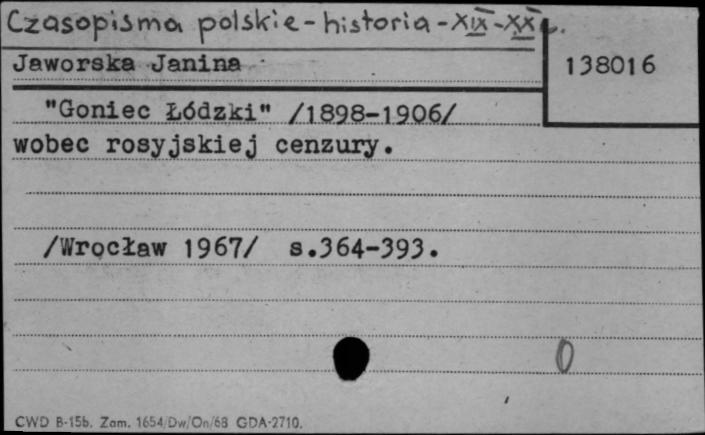 Czasopisma polskie - historia - XIX-XX w.
Jaworska Janina
138016
"Goniec Łódzki" /1898-1906/
wobec rosyjskiej cenzury.
/Wrocław 1967/ s.364-393.
0
CWD B-15b. Zam. 1654/Dw/On/68 GDA-2710.